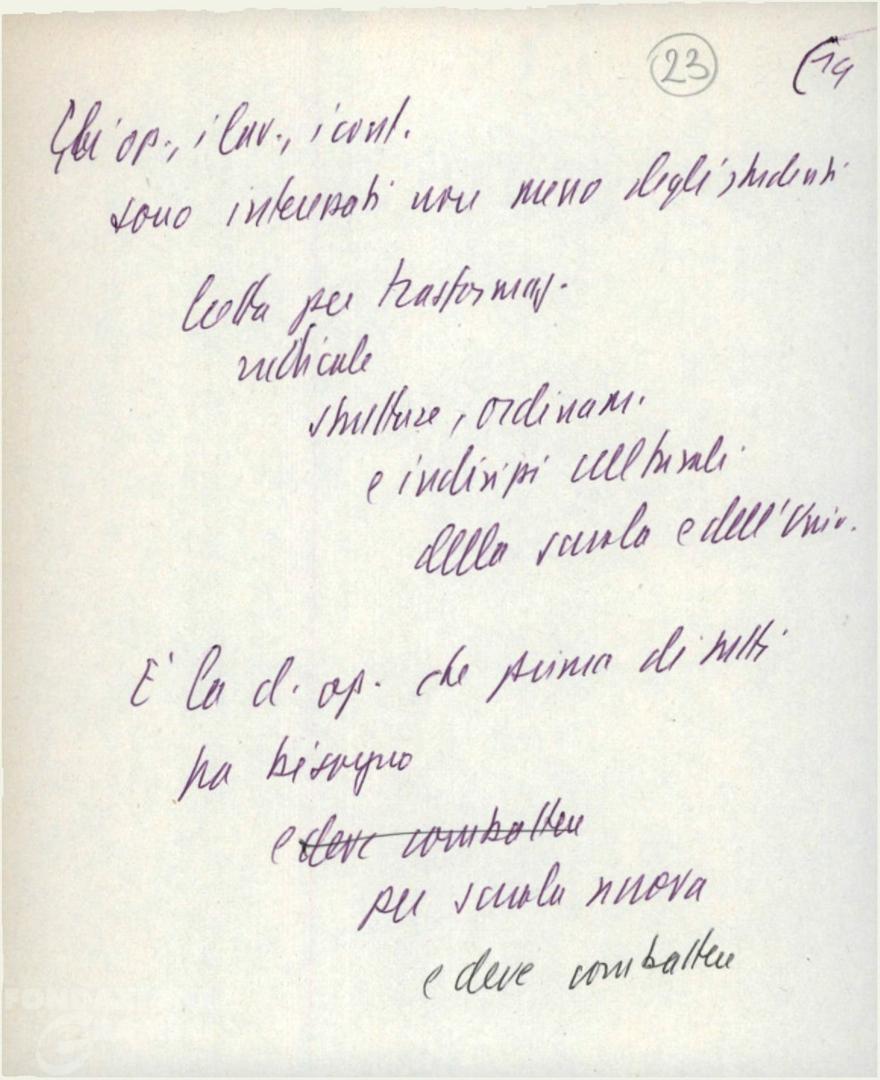 23
(14
Gli op., i lav., i cont.
sono interessati non meno degli studenti
lotta per trasformaz.
radicale
strutture, ordinam.
e indirizzi culturali
della scuola e dell'Univ.
E' la cl. op. che prima di tutti
ha bisogno
e deve combattere
per scuola nuova
e deve combattere
FONDAZIONE